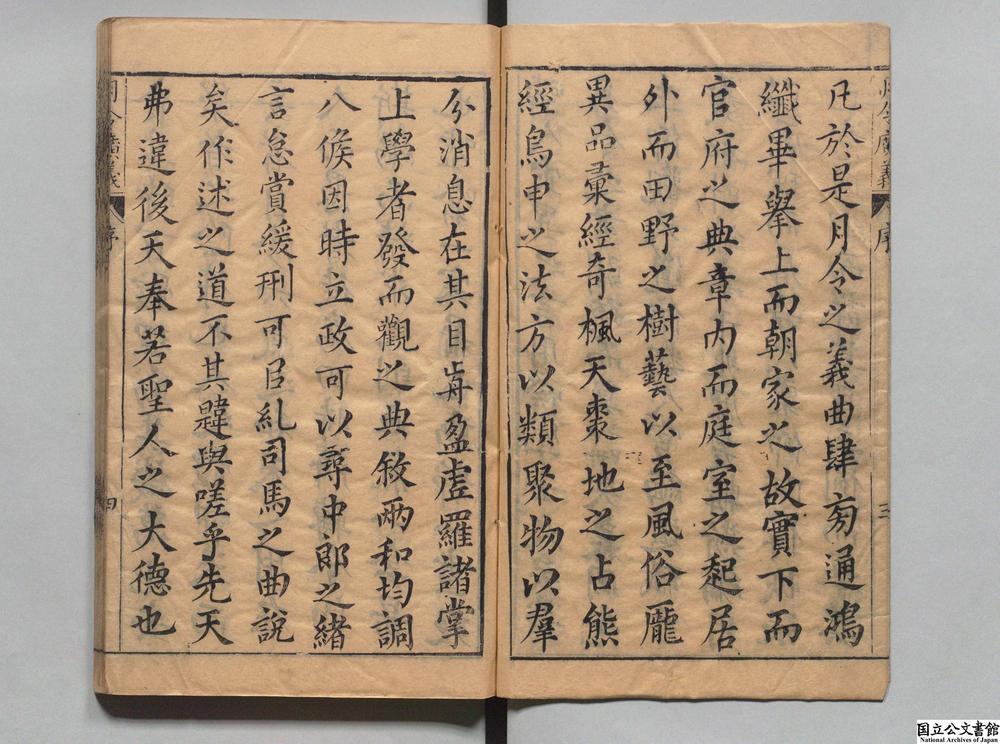 凡於是月令之義曲肆旁通鴻
纖畢擧上而朝家之故實下而
官府之典章内而庭室之起居
外而田野之樹藝以至風俗厖
異品彙經奇楓天棗地之占熊
經鳥申之法方以類聚物以羣
分消息在其目歬盈虛羅諸掌
上學者發而觀之典敘兩和均調
八候因時立政可以尋中郎之緒
言怠賞緩刑可㠯糺司馬之曲說
矣作述之道不其韙與嗟乎先天
弗違後天奉若聖人之大德也
月令廣義
序
三
月令廣義
序
四
国立公文書館
National Archives of Japan